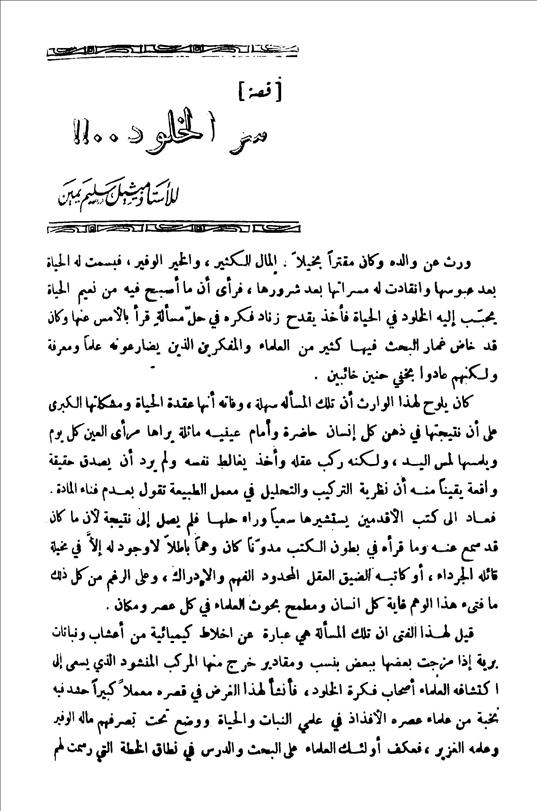 [ قصة ]
سر الخلود ..!!
للأستاذ ميشيل سليم يمين
ورث عن والده وكان مقتراً بخيلاً . المال الكثير ، والخير الوفير ، فبسمت له الحياة
بعد عبوسها وانقادت له مسراتها بعد شرورها ، فرأى أن ما أصبح فيه من نعيم الحياة
يحبّب إليه الخلود في الحياة فأخذ يقدح زناد فكره في حلّ مسألة قرأ بالأمس عنها وكان
قد خاض غمار البحث فيها كثير من العلماء والمفكرين الذين يضارعونه علماً ومعرفة
ولكنهم عادوا بخفي حنين خائبين .
كان يلوح لهذا الوارث أن تلك المسألة سهلة ، وفاته أنها عقدة الحياة ومشكلتها الكبرى
على أن نتيجتها في ذهن كل إنسان حاضرة وأمام عينيه ماثلة يراها مرأى العين كل يوم
ويلمسها لمس اليد ، ولكنه ركب عقله وأخذ يغالط نفسه ولم يرد أن يصدق حقيقة
واقعة يقيناً منه أن نظرية التركيب والتحليل في معمل الطبيعة تقول بعدم فناء المادة .
فعاد الى كتب الأقدمين يستشيرها سعياً وراء حلها فلم يصل إلى نتيجة لأن ما كان
قد سمع عنه وما قرأه في بطون الكتب مدوّناً كان وهماً باطلاً لاوجود له إلاّ في مخيلة
قائله الجرداء ، أو كاتبه الضيق العقل المحدود الفهم والإدراك ، وعلى الرغم من كل ذلك
ما فتىء هذا الوهم غاية كل انسان ومطمح بحوث العلماء في كل عصر ومكان .
قيل لهذا الفتى ان تلك المسألة هي عبارة عن اخلاط كيميائية من أعشاب ونباتات
برية إذا مزجت بعضها ببعض بنسب ومقادير خرج منها المركب المنشود الذي يسعى إلى
اكتشافه العلماء أصحاب فكرة الخلود ، فأنشأ لهذا الغرض في قصره معملاً كبيراً حشد فيه
نخبة من علماء عصره الافذاذ في علمي النبات والحياة ووضع تحت تصرفهم ماله الوفير
وعلمه الغزير ، فعكف أولئك العلماء على البحث والدرس في نطاق الخطة التي رسمت لهم